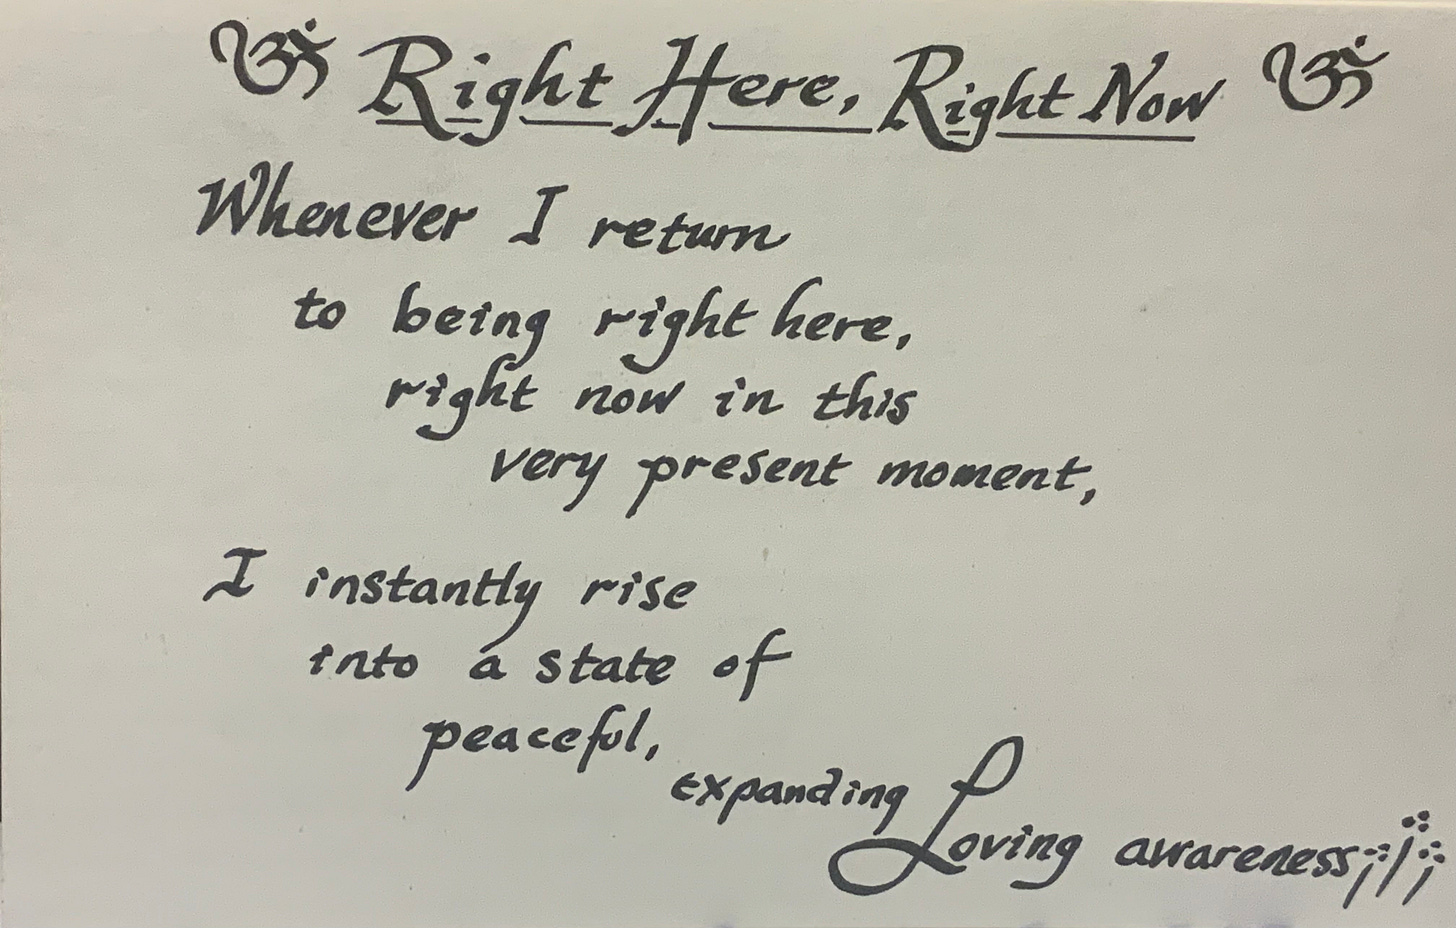 ॐ Right Here, Right Now ॐ
Whenever I return
to being right here,
right now in this
very present moment,
I instantly rise
into a state of
peaceful,
expanding
Loving awareness